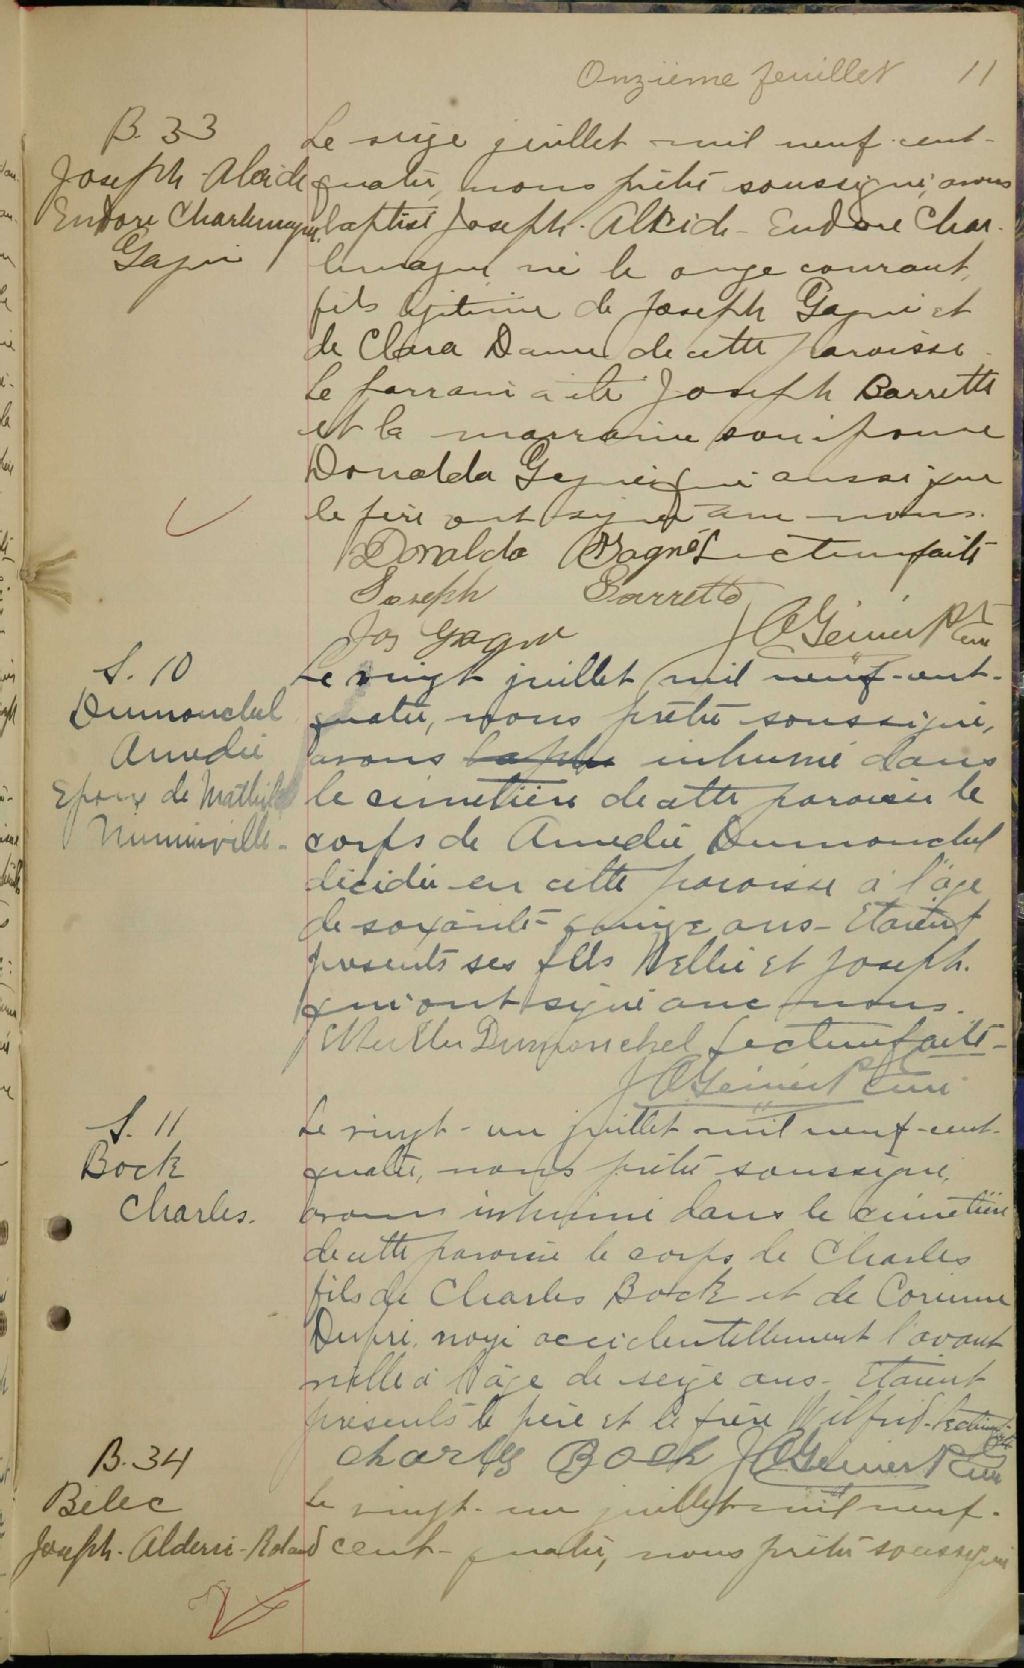 Onzième feuillet 11
B. 33
Joseph-Alcide
Endore Charlemagne
Gagné
Le seize juillet mil neuf-cent-
quatre, nous prêtre soussigné, avons
baptisé Joseph-Alcide-Endore Char-
lemagne, né le onze courant,
fils légitime de Joseph Gagné et
de Clara de cette paroisse.
Le parrain a été Joseph Barrette
et la marraine son épouse
Donalda Gagné qui aussi que
le père ont signé avec nous.
Donalda Gagné Lecture faite
Joseph Barrette
Jos Gagné Ptre Curé
S. 10
Dumouchel
Amédée
Epoux de Mathilde
Niminville-
Le vingt juillet mil neuf-cent-
quatre, nous prêtre soussigné,
avons inhumé dans
le cimetière de cette paroisse le
corps de Amédée Dumouchel
décédé en cette paroisse à l'âge
de soixante-quinze ans- Etaient
présents ses fils Wellie et Joseph.
qui ont signé avec nous.
Dumouchel Lecture faite-
Ptre Curé
S. 11
Bock
Charles.
Le vingt-un juillet mil neuf-cent-
quatre, nous prêtre soussigné,
avons inhumé dans le cimetière
de cette paroisse le corps de Charles
fils de Charles Bock et de Corinne
Dupré, noyé accidentellement l'avant
veille à l'âge de seize ans- Etaient
présents le père et le frère Wilfrid. Lecture faite
Charles Bock Ptre Curé
B. 34
Bélec
Joseph-Aldéri-Roland
Le vingt-un juillet mil neuf-
cent-quatre, nous prêtre soussigné